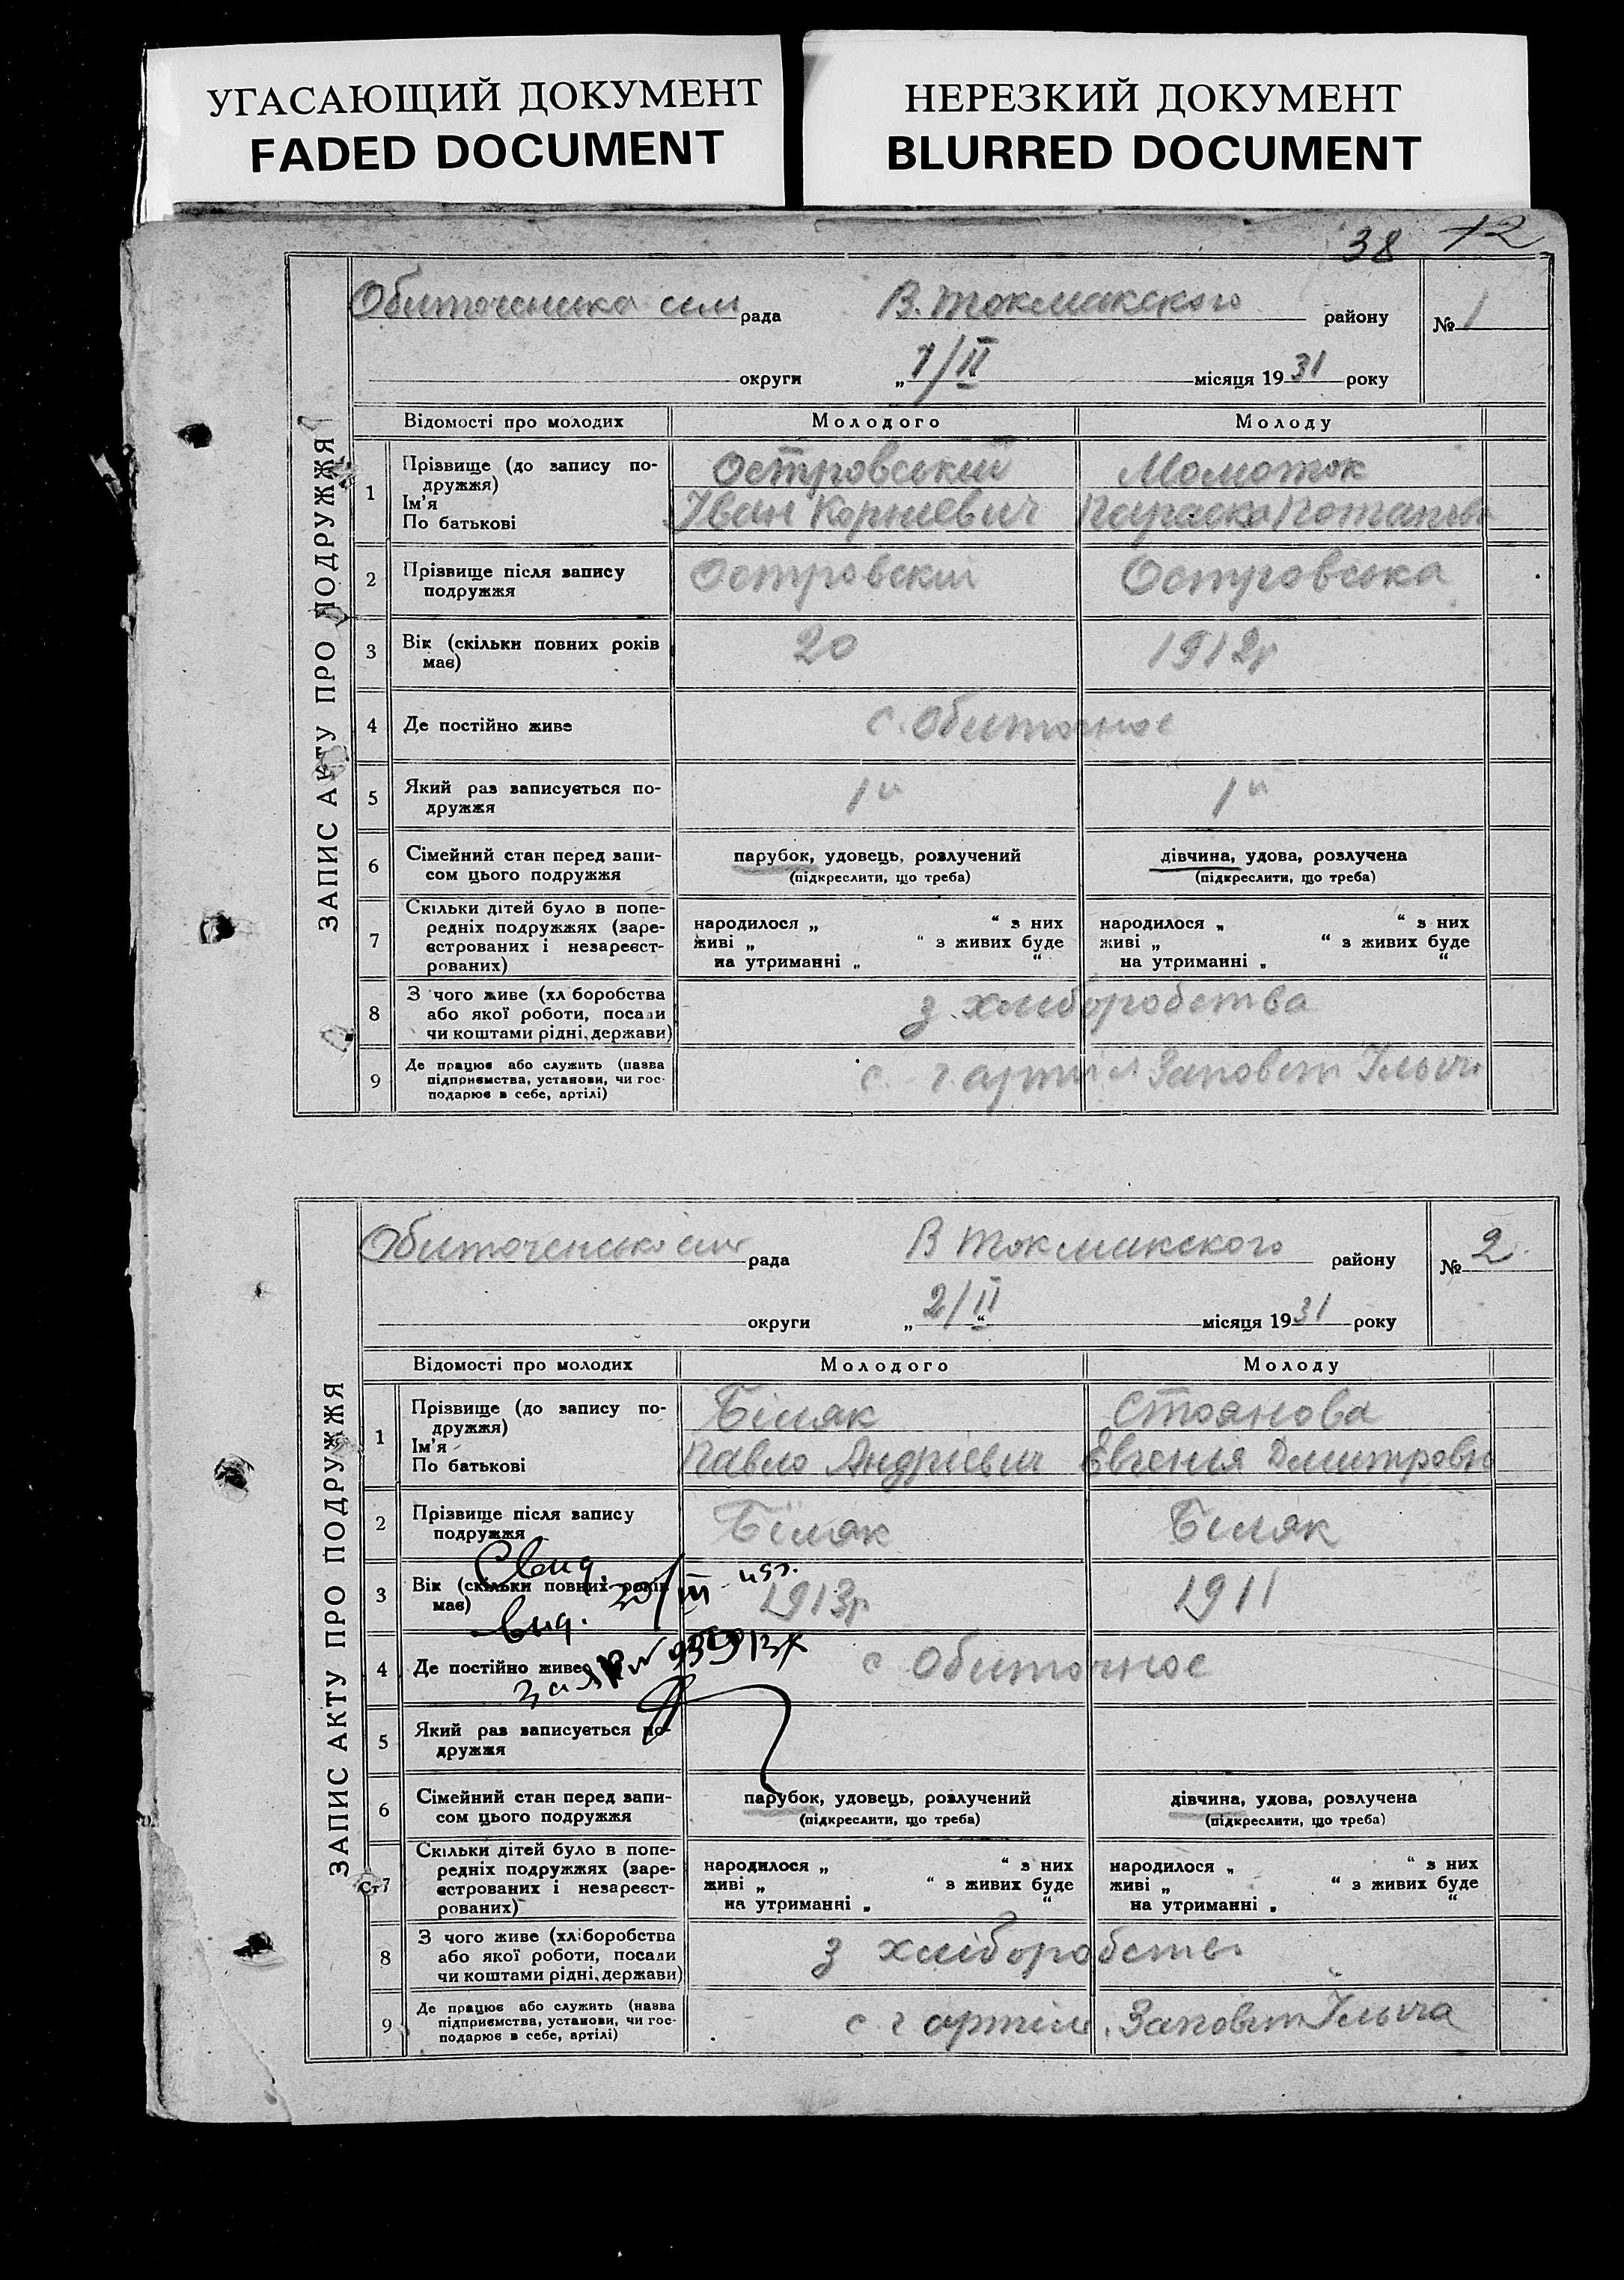 УГАСАЮЩИЙ ДОКУМЕНТ
FADED DOCUMENT
НЕРЕЗКИЙ ДОКУМЕНТ
BLURRED DOCUMENT
38 12
ЗАПИС АКТУ ПРО ПОДРУЖЖЯ
Обиточенська сил рада В. Токмакского району № 1
округи „ 1/II “ місяця 1931 року
Відомості про молодих Молодого Молоду
1 Прізвище (до запису подружжя) Островський Момоток
Ім'я По батькові Іван Корнієвич Параска
2 Прізвище після запису подружжя Островский Островська
3 Вік (скільки повних років має) 20 1912р
4 Де постійно живе с. Обиточное
5 Який раз записується подружжя 1й 1й
6 Сімейний стан перед записом цього подружжя парубок, удовець, розлучений дівчина, удова, розлучена
(підкреслити, що треба) (підкреслити, що треба)
7 Скільки дітей було в попередніх подружжях (зареєстрованих і незареєстрованих)
народилося „ “ з них народилося „ “ з них
живі „ “ з живих буде живі „ “ з живих буде
на утриманні „ “ на утриманні „ “
8 З чого живе (хліборобства або якої роботи, посади чи коштами рідні, держави) з хліборобства
9 Де працює або служить (назва підприємства, установи, чи господарює в себе, артілі) с. г. артіл Заповіт Ілыча
ЗАПИС АКТУ ПРО ПОДРУЖЖЯ
Обиточенська сил рада В Токмакского району № 2
округи „ 2/II “ місяця 1931 року
Відомості про молодих Молодого Молоду
1 Прізвище (до запису подружжя) Біляк Стоянова
Ім'я По батькові Павло Андрієвич Євгенія Дмитровн
2 Прізвище після запису подружжя Біляк Біляк
Свид.
3 Вік (скільки повних років має) 1913р 1911
вид. 20/III
4 Де постійно живе с Обиточное
за №
5 Який раз записується подружжя
6 Сімейний стан перед записом цього подружжя парубок, удовець, розлучений дівчина, удова, розлучена
(підкреслити, що треба) (підкреслити, що треба)
Ст 7 Скільки дітей було в попередніх подружжях (зареєстрованих і незареєстрованих)
народилося „ “ з них народилося „ “ з них
живі „ “ з живих буде живі „ “ з живих буде
на утриманні „ “ на утриманні „ “
8 З чого живе (хліборобства або якої роботи, посади чи коштами рідні, держави) з хліборобств
9 Де працює або служить (назва підприємства, установи, чи господарює в себе, артілі) с г артіль Заповіт Ілыча